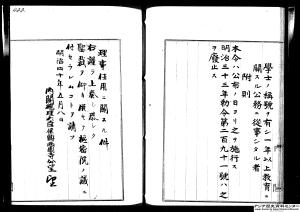 學士ノ稱號ヲ有シ一年以上教育ニ
關スル公務ニ從事シタル者
附則
本令ハ公布ノ日ヨリ之ヲ施行ス
明治三十三年勅令第二百九十一號ハ之
ヲ廢止ス
理事任用ニ關スル件
右謹テ上奏シ恭シク
聖裁ヲ仰キ併セテ樞密院ノ議ニ
付セラレムコトヲ請フ
明治四十年五月八日
內閣總理大臣侯爵西園寺公望